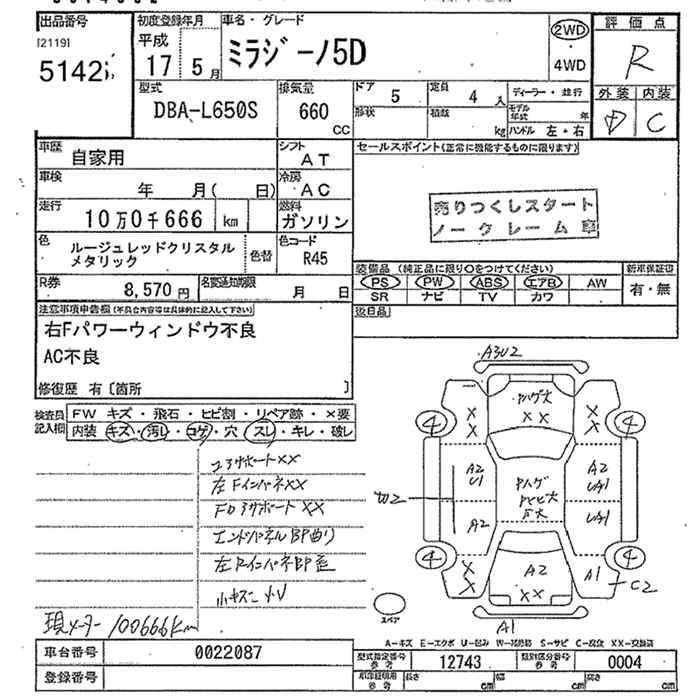 出品番号
[2119]
初度登録年月
平成
17 5月
車名・グレード
ミラジーノ5D
2WD
・
4WD
評価点
R
外装 内装
D C
型式
DBA-L650S
排気量
660
CC
ドア
5
定員
4 人
形状
積載
kg
ディーラー・並行
モデル年式 年
ハンドル 左・右
車歴
自家用
シフト
AT
車検
年 月( 日)
冷房
AC
走行
10万0千666 km
燃料
ガソリン
色
ルージュレッドクリスタル
メタリック
色替
色コード
R45
R券
8,570 円
名変通知期限
月 日
セールスポイント(正常に機能するものに限ります)
売りつくしスタート
ノークレーム車
装備品 (純正品に限り○をつけてください)
PS PW ABS エアB AW
SR ナビ TV カワ
新車保証書
有・無
後日品
注意事項申告欄(不具合内容等は具体的に記入して下さい)
右Fパワーウィンドウ不良
AC不良
修復歴 有〔箇所 〕
検査員
記入欄
FW キズ・飛石・ヒビ割・リペア跡・×要
内装 キズ・汚レ・コゲ・穴・スレ・キレ・破レ
コアサポートXX
左FインパネXX
エンドパネルBP曲り
現メーター100666km
A3U2
4
X
X
X X
X
X
4
A2
U1
A2
A2
UA1
UA1
4
X
X
A2
XX
A1
C2
4
A1
スペア
A-キズ E-エクボ U-凹み S-サビ C-腐食 XX-交換済
車台番号
0022087
登録番号
型式指定番号
参考
12743
類別区分番号
参考
0004
長さ
cm
幅
cm
高さ
cm